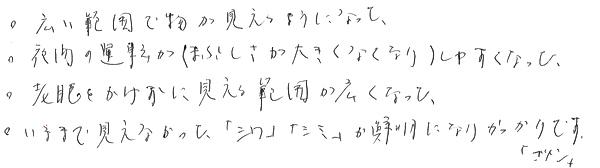 。広い範囲で物が見えるようになった、
。夜間の運転が(まぶしさが大きくなくなり)しやすくなった、
。老眼をかけずに見える範囲が広くなった、
。いままで見えなかった、「シワ」「シミ」が鮮明になりがっかりです。